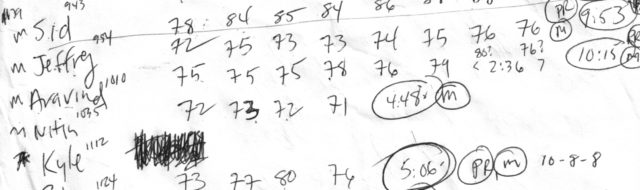 943
m Sid 78 84 85 84 86 PR 9:53
m Jeffrey 954 72 75 73 73 74 75 76 76 m
80? 76?
m Aravind 1010 75 75 75 78 76 79 < 2:36 7 10:15
m Nitin 1035 72 73 72 71 4:48 m
Kyle 1112
1124 73 77 80 76 5:06 PR m 10-8-8